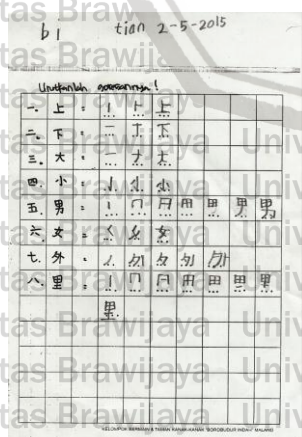 b1 tian 2-5-2015
Urutkanlah goresannya!
一. 上 = 丨 卜 上
二. 下 = 一 丅 下
三. 大 = 一 ナ 大
四. 小 = 亅 小
五. 男 = 丨 冂 日 田 男
六. 女 = く 女
七. 外 = ノ 夕 外
八. 里 = 丨 冂 日 甲 里
里.
KELOMPOK BERMAIN & TAMAN KANAK-KANAK "BOROBUDUR INDAH" MALANG
tas Brawijaya Univ